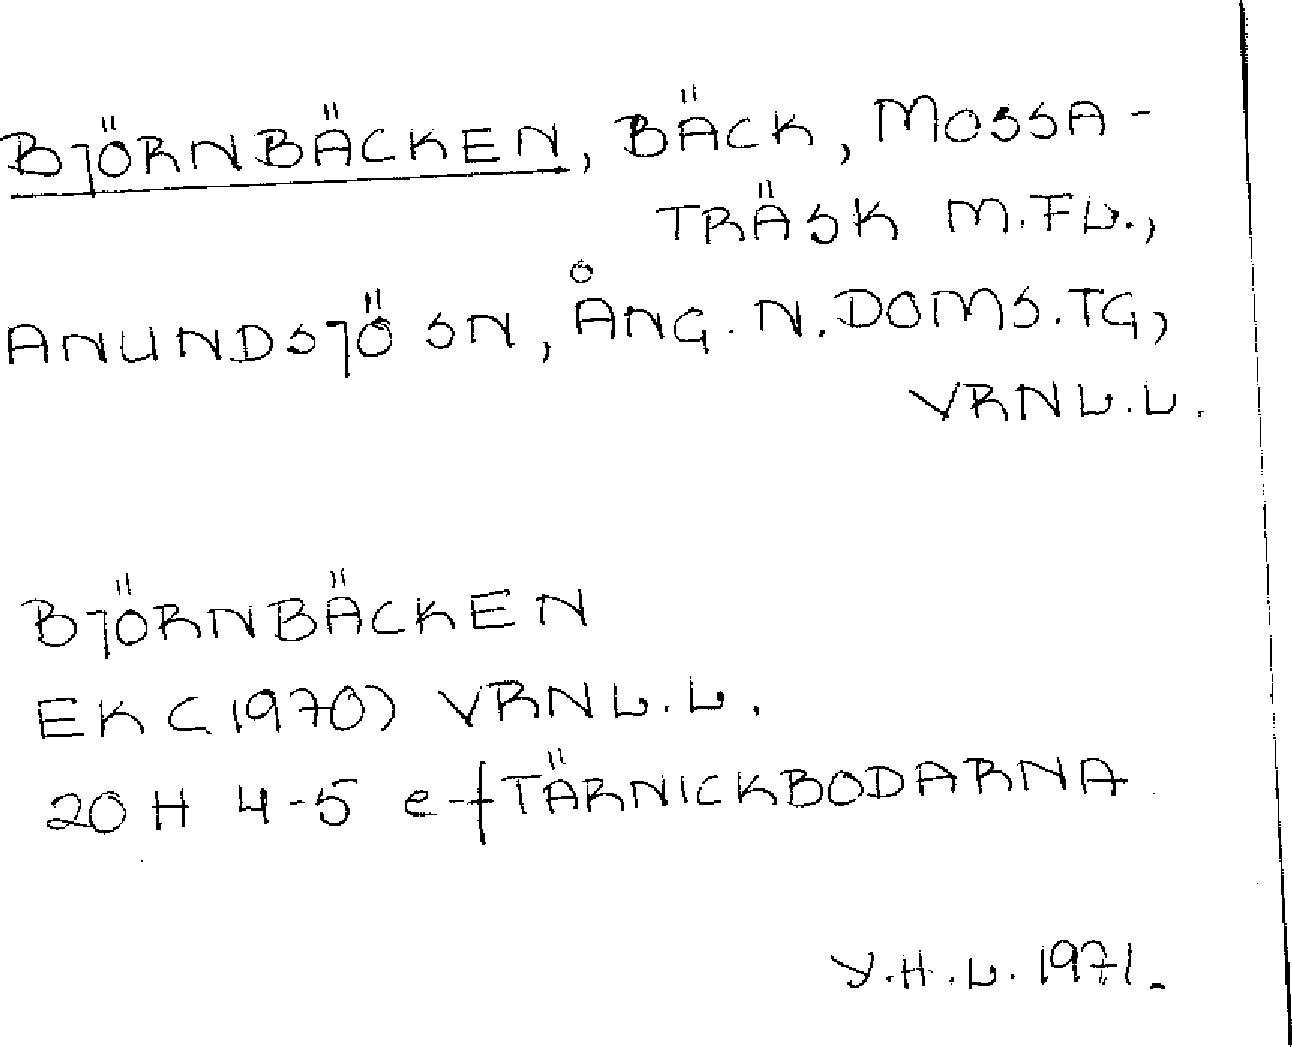 BJÖRNBÄCKEN, BÄCK, MOSSA-
TRÄSK M.FL.,
ANUNDSJÖ SN, ÅNG. N. DOMS.TG,
VRNL.L.
BJÖRNBÄCKEN
EK (1970) VRNL.L.
20 H 4-5 e-f TÄRNICKBODARNA
Y.H.L. 1971.